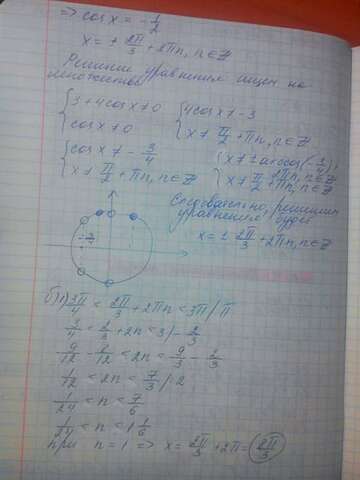 => cos x = - 1/2
x = ± 2π/3 + 2πn, n ∈ Z
Решение уравнения ищем на
множестве
{ 3 + 4cos x ≠ 0
{ cos x ≠ 0
{ 4cos x ≠ -3
{ x ≠ π/2 + πn, n ∈ Z
{ cos x ≠ - 3/4
{ x ≠ π/2 + πn, n ∈ Z
{ x ≠ ± arccos(- 3/4) + 2πn, n ∈ Z
{ x ≠ π/2 + πn, n ∈ Z
Следовательно, решением
уравнения будет
x = ± 2π/3 + 2πn, n ∈ Z
- 3/4
б) 1) 3π/4 < 2π/3 + 2πn < 3π / π
3/4 < 2/3 + 2n < 3 / - 2/3
9/12 - 8/12 < 2n < 9/3 - 2/3
1/12 < 2n < 7/3 / : 2
1/24 < n < 7/6
1/24 < n < 1 1/6
при n = 1 => x = 2π/3 + 2π = 8π/3